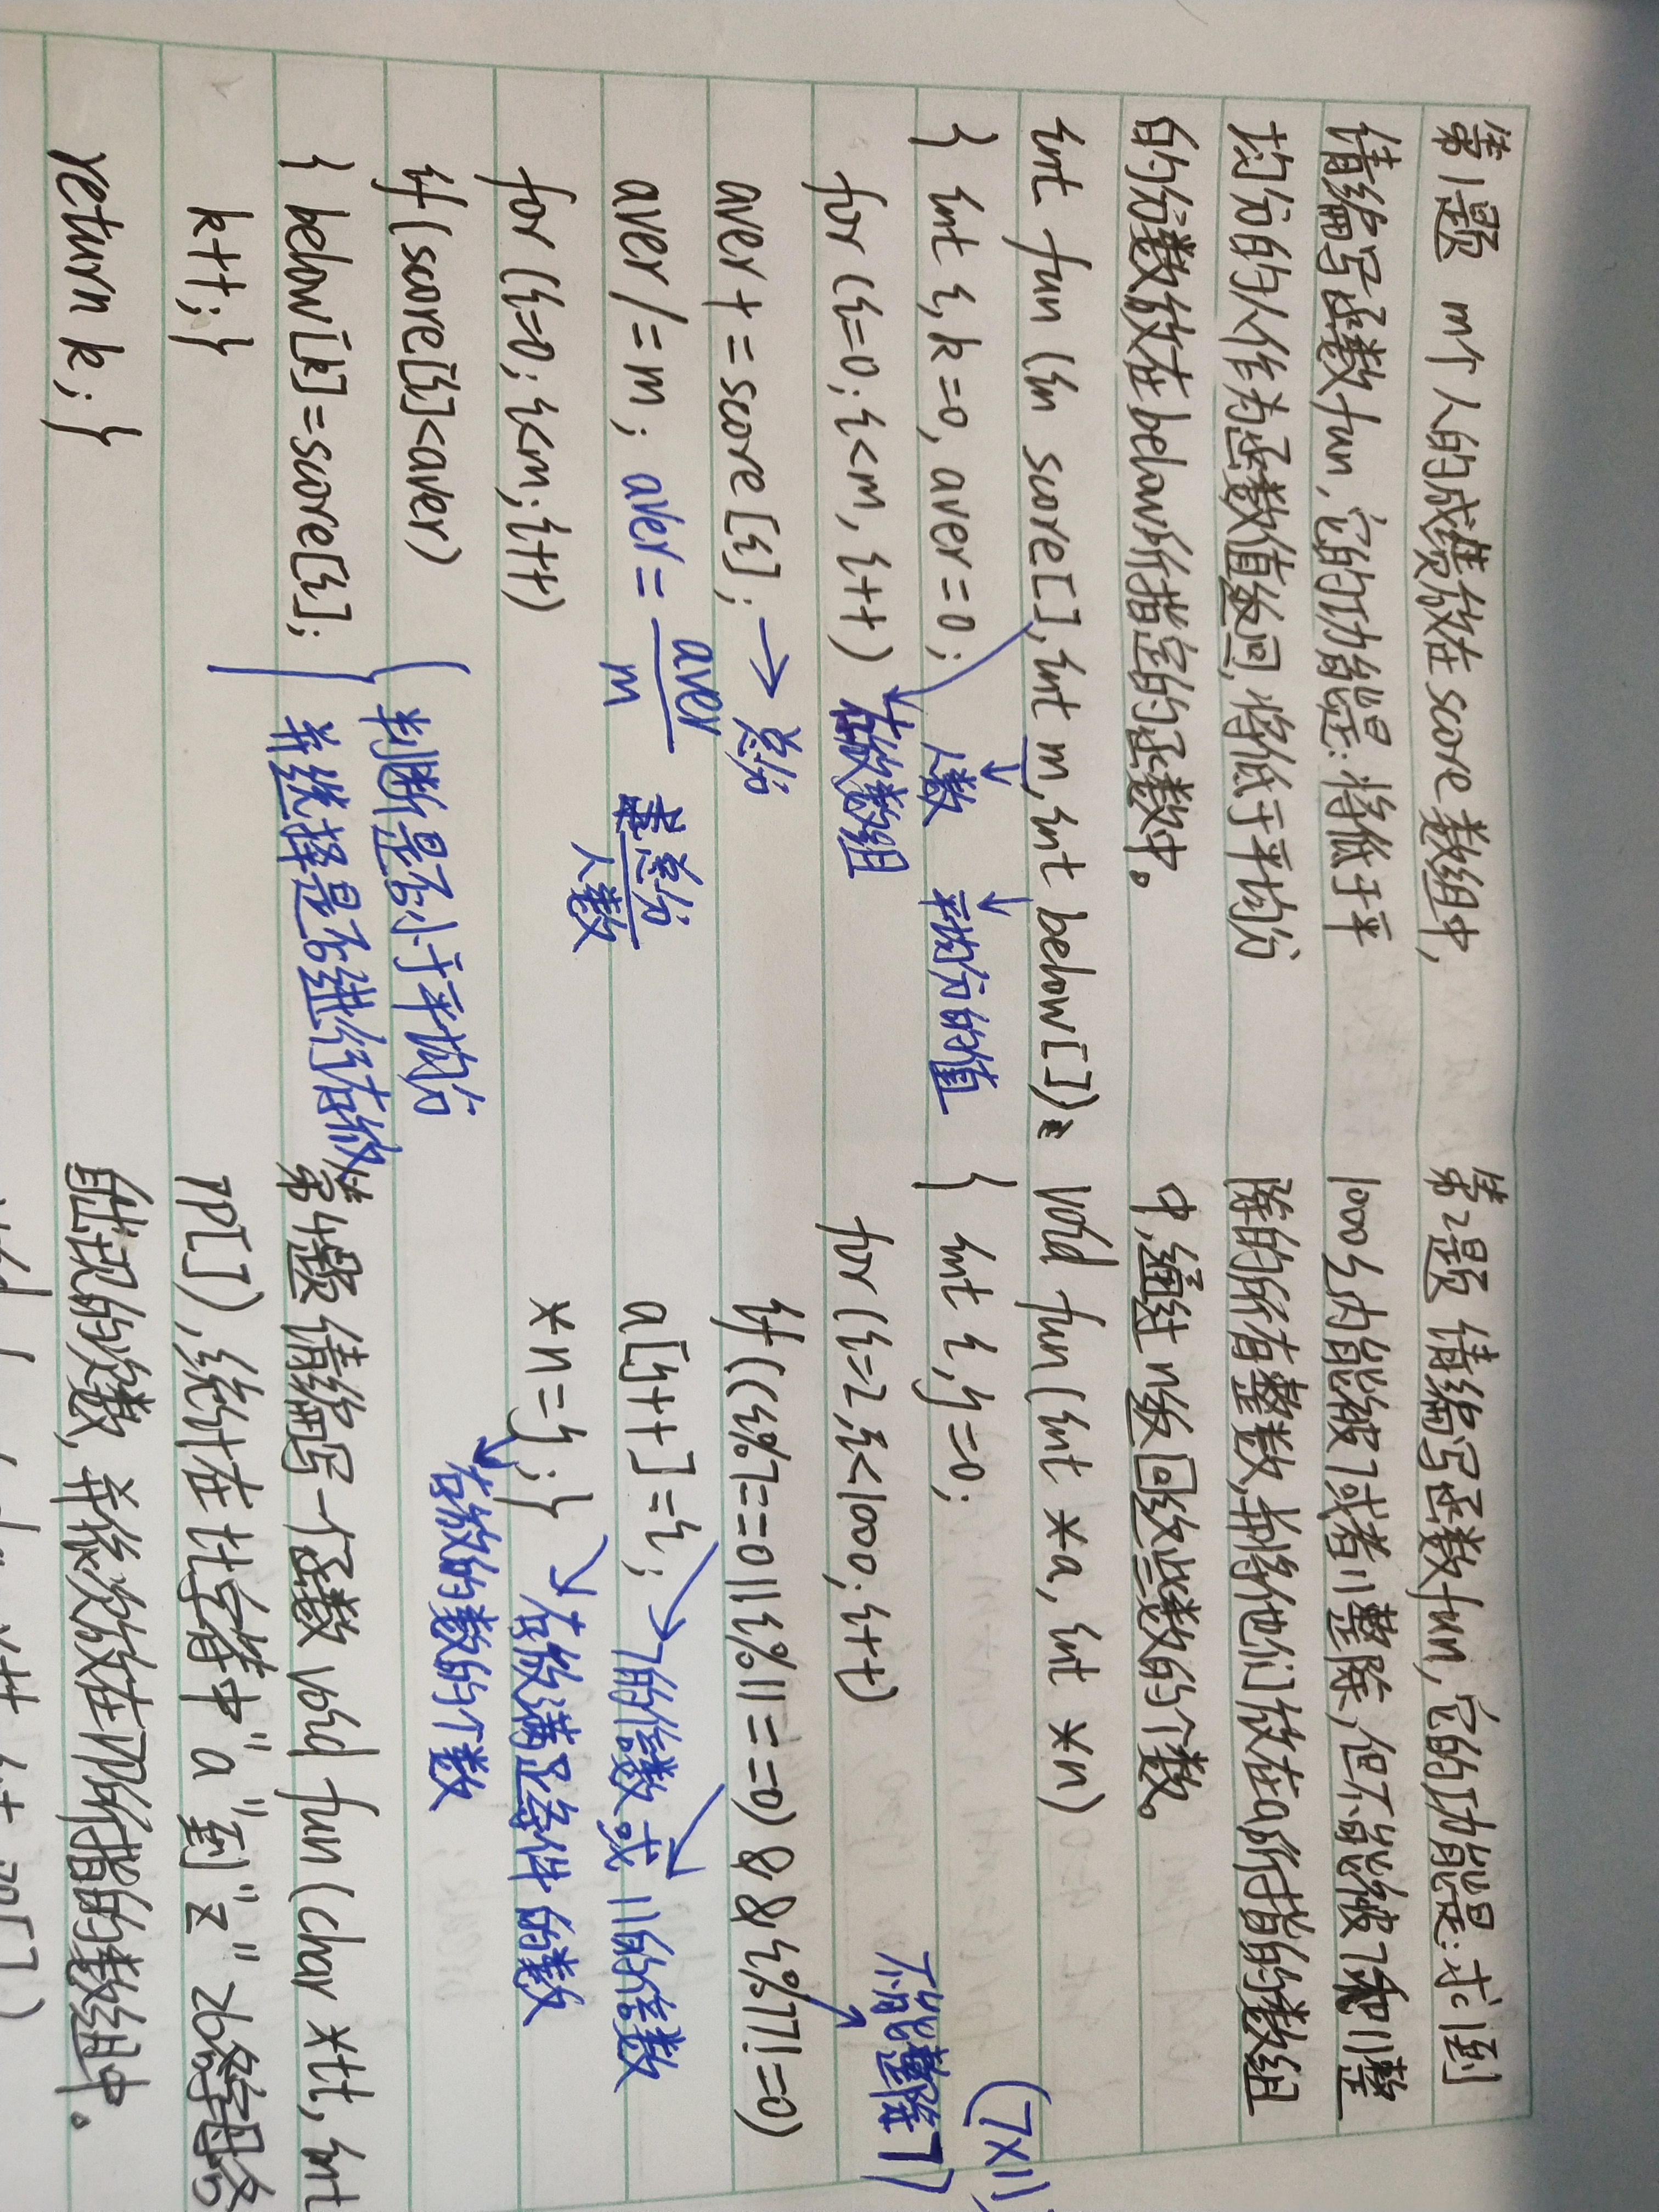 第1题 m个人的成绩放在score数组中,
请编写函数fun,它的功能是:将低于平
均分的人作为函数值返回,将低于平均分
的分数放在below所指定的函数中。
int fun (in score[],int m,int below[])
人数 平均分的值
{ int i,k=0,aver=0;
for (i=0;i<m,i++) 存放数组
aver+=score[i]; → 总分
aver/=m; aver=aver/m 总分/人数
for (i=0;i<m;i++)
if(score[i]<aver) 判断是否小于平均分
{ below[k]=score[i]; 并选择是否进行存放
k++;}
return k;}
第2题 请编写函数fun,它的功能是:求1到
1000之内能被7或者11整除,但不能被7和11整
除的所有整数,并将他们放在a所指的数组
中,通过n返回这些数的个数。
void fun(int *a,int *n)
(7×11)
{ int i,j=0;
不能整除
for (i=2,i<1000;i++)
if((i%7==0||i%11==0)&&i%77!=0)
a[j++]=i; 7的倍数或11的倍数
*n=j;} 存放满足条件的数
存放的数的个数
第4题 请编写一个函数 void fun(char *tt,int
pp[]),统计在tt字符中"a"到"z"26字母各
自出现的次数,并依次放在pp所指的数组中。